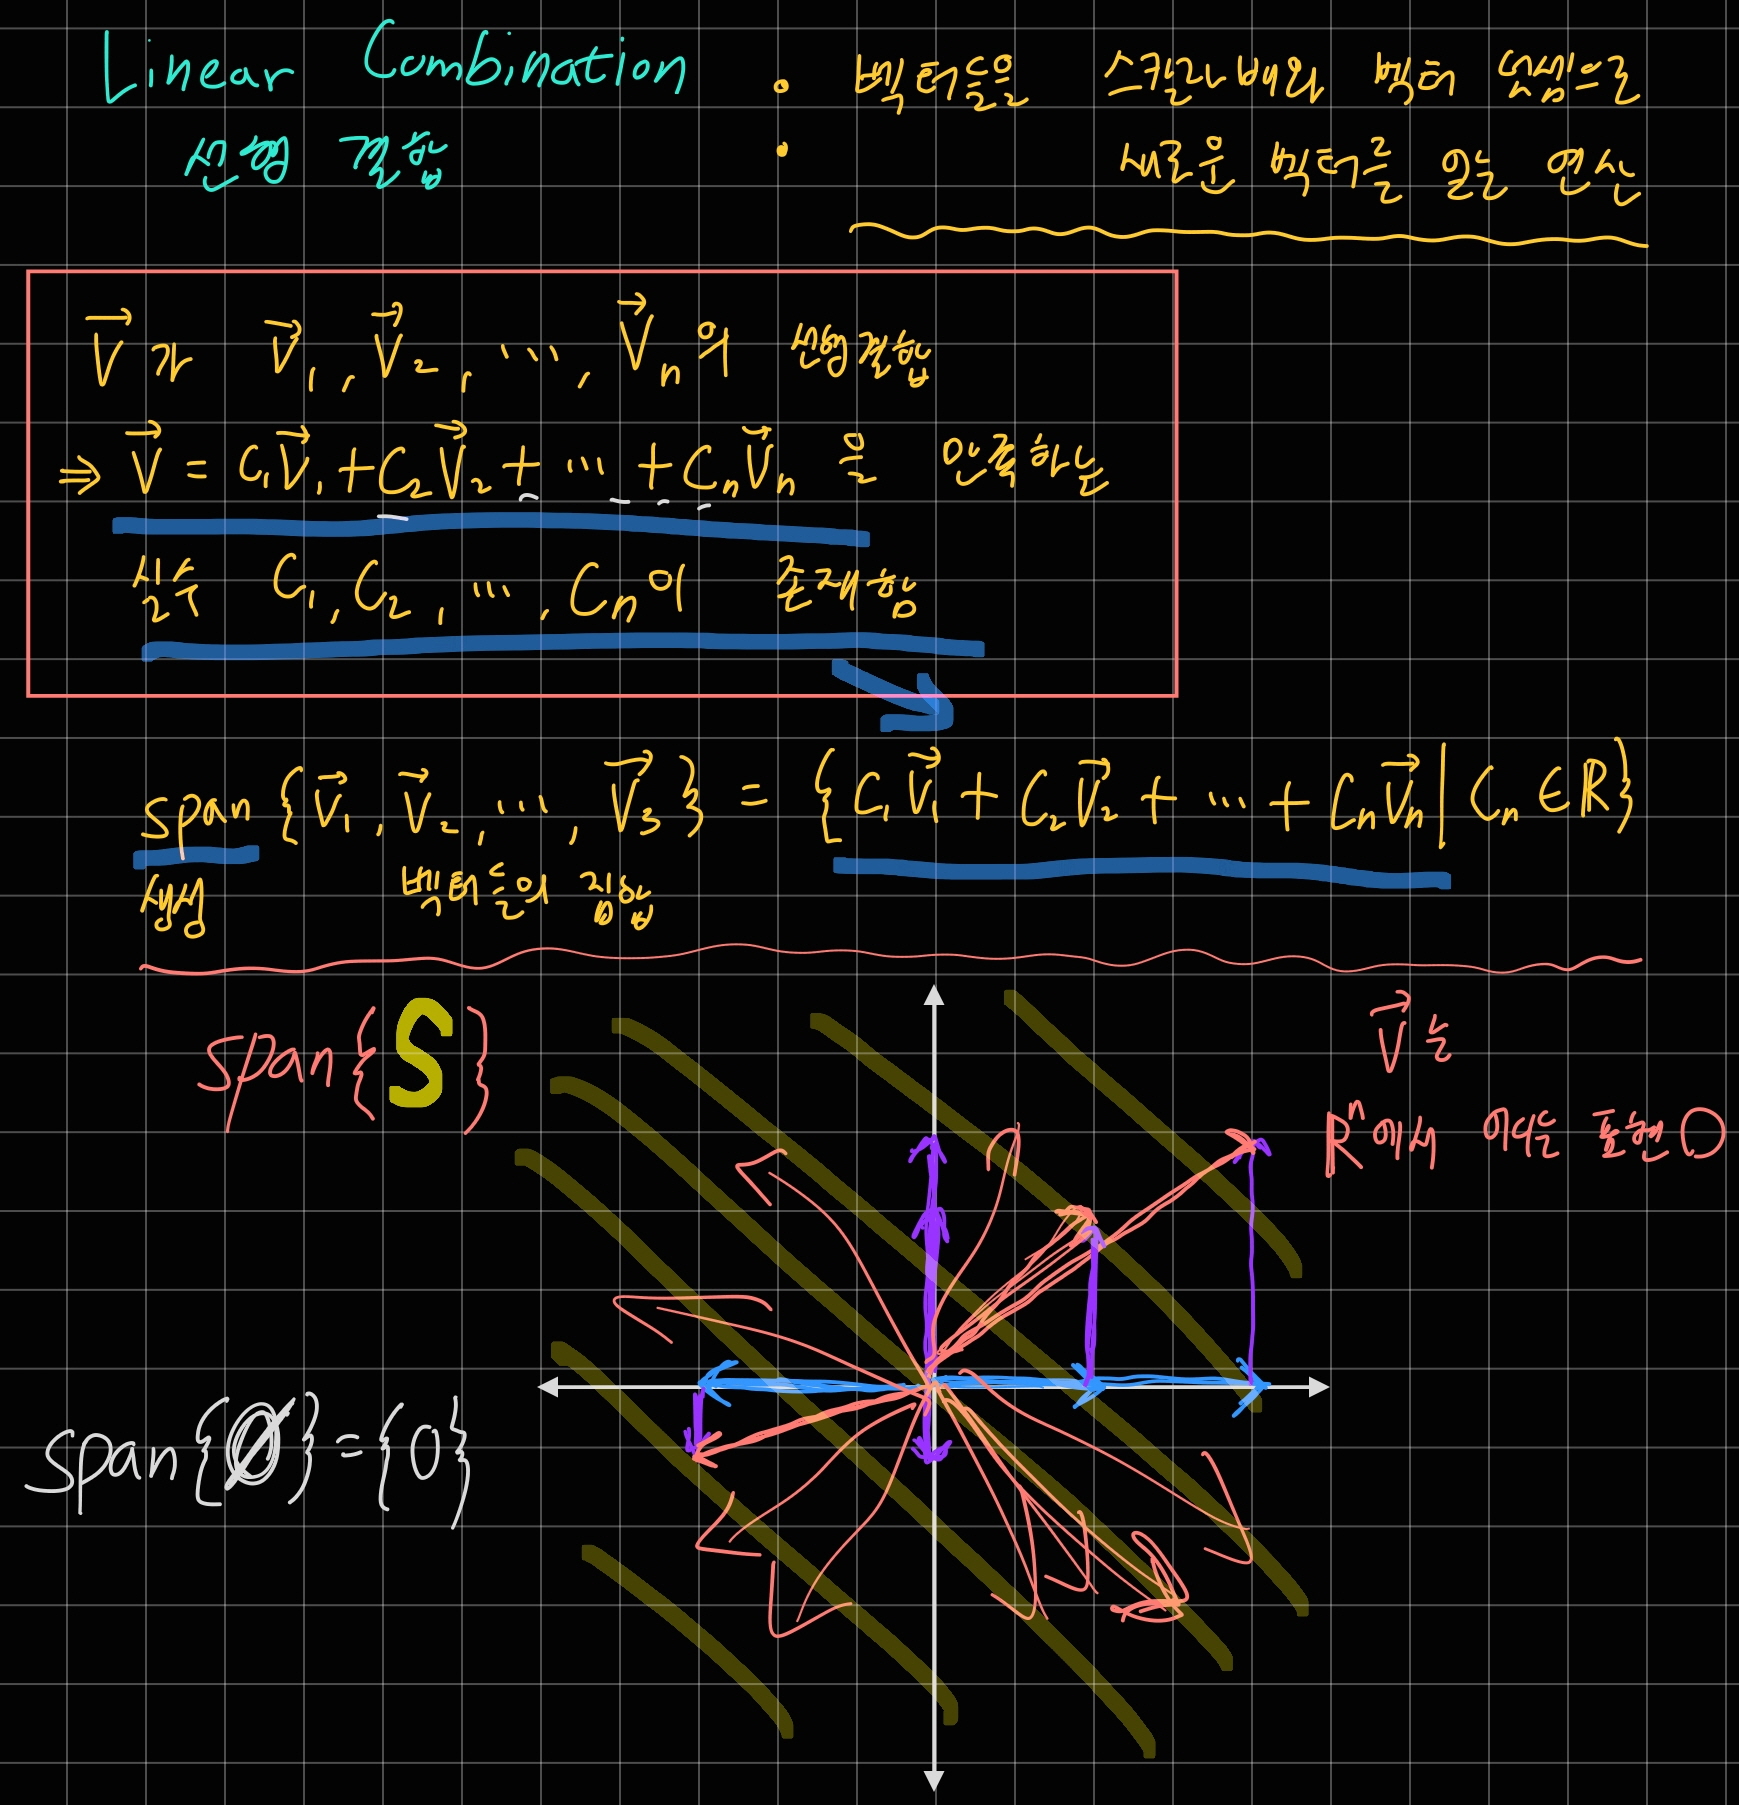 Linear Combination : 벡터들을 스칼라배와 벡터 덧셈으로
선형 결합 새로운 벡터를 얻는 연산
V⃗가 V⃗₁, V⃗₂, ..., V⃗ₙ의 선형결합
⇒ V⃗ = C₁V⃗₁ + C₂V⃗₂ + ... + CₙV⃗ₙ 을 만족하는
실수 C₁, C₂, ..., Cₙ이 존재함
span {V⃗₁, V⃗₂, ..., V⃗₃} = {C₁V⃗₁ + C₂V⃗₂ + ... + CₙV⃗ₙ | Cₙ ∈ ℝ}
생성 벡터들의 집합
span{S}
V⃗는
Rⁿ에서 표현
span{∅} = {0}